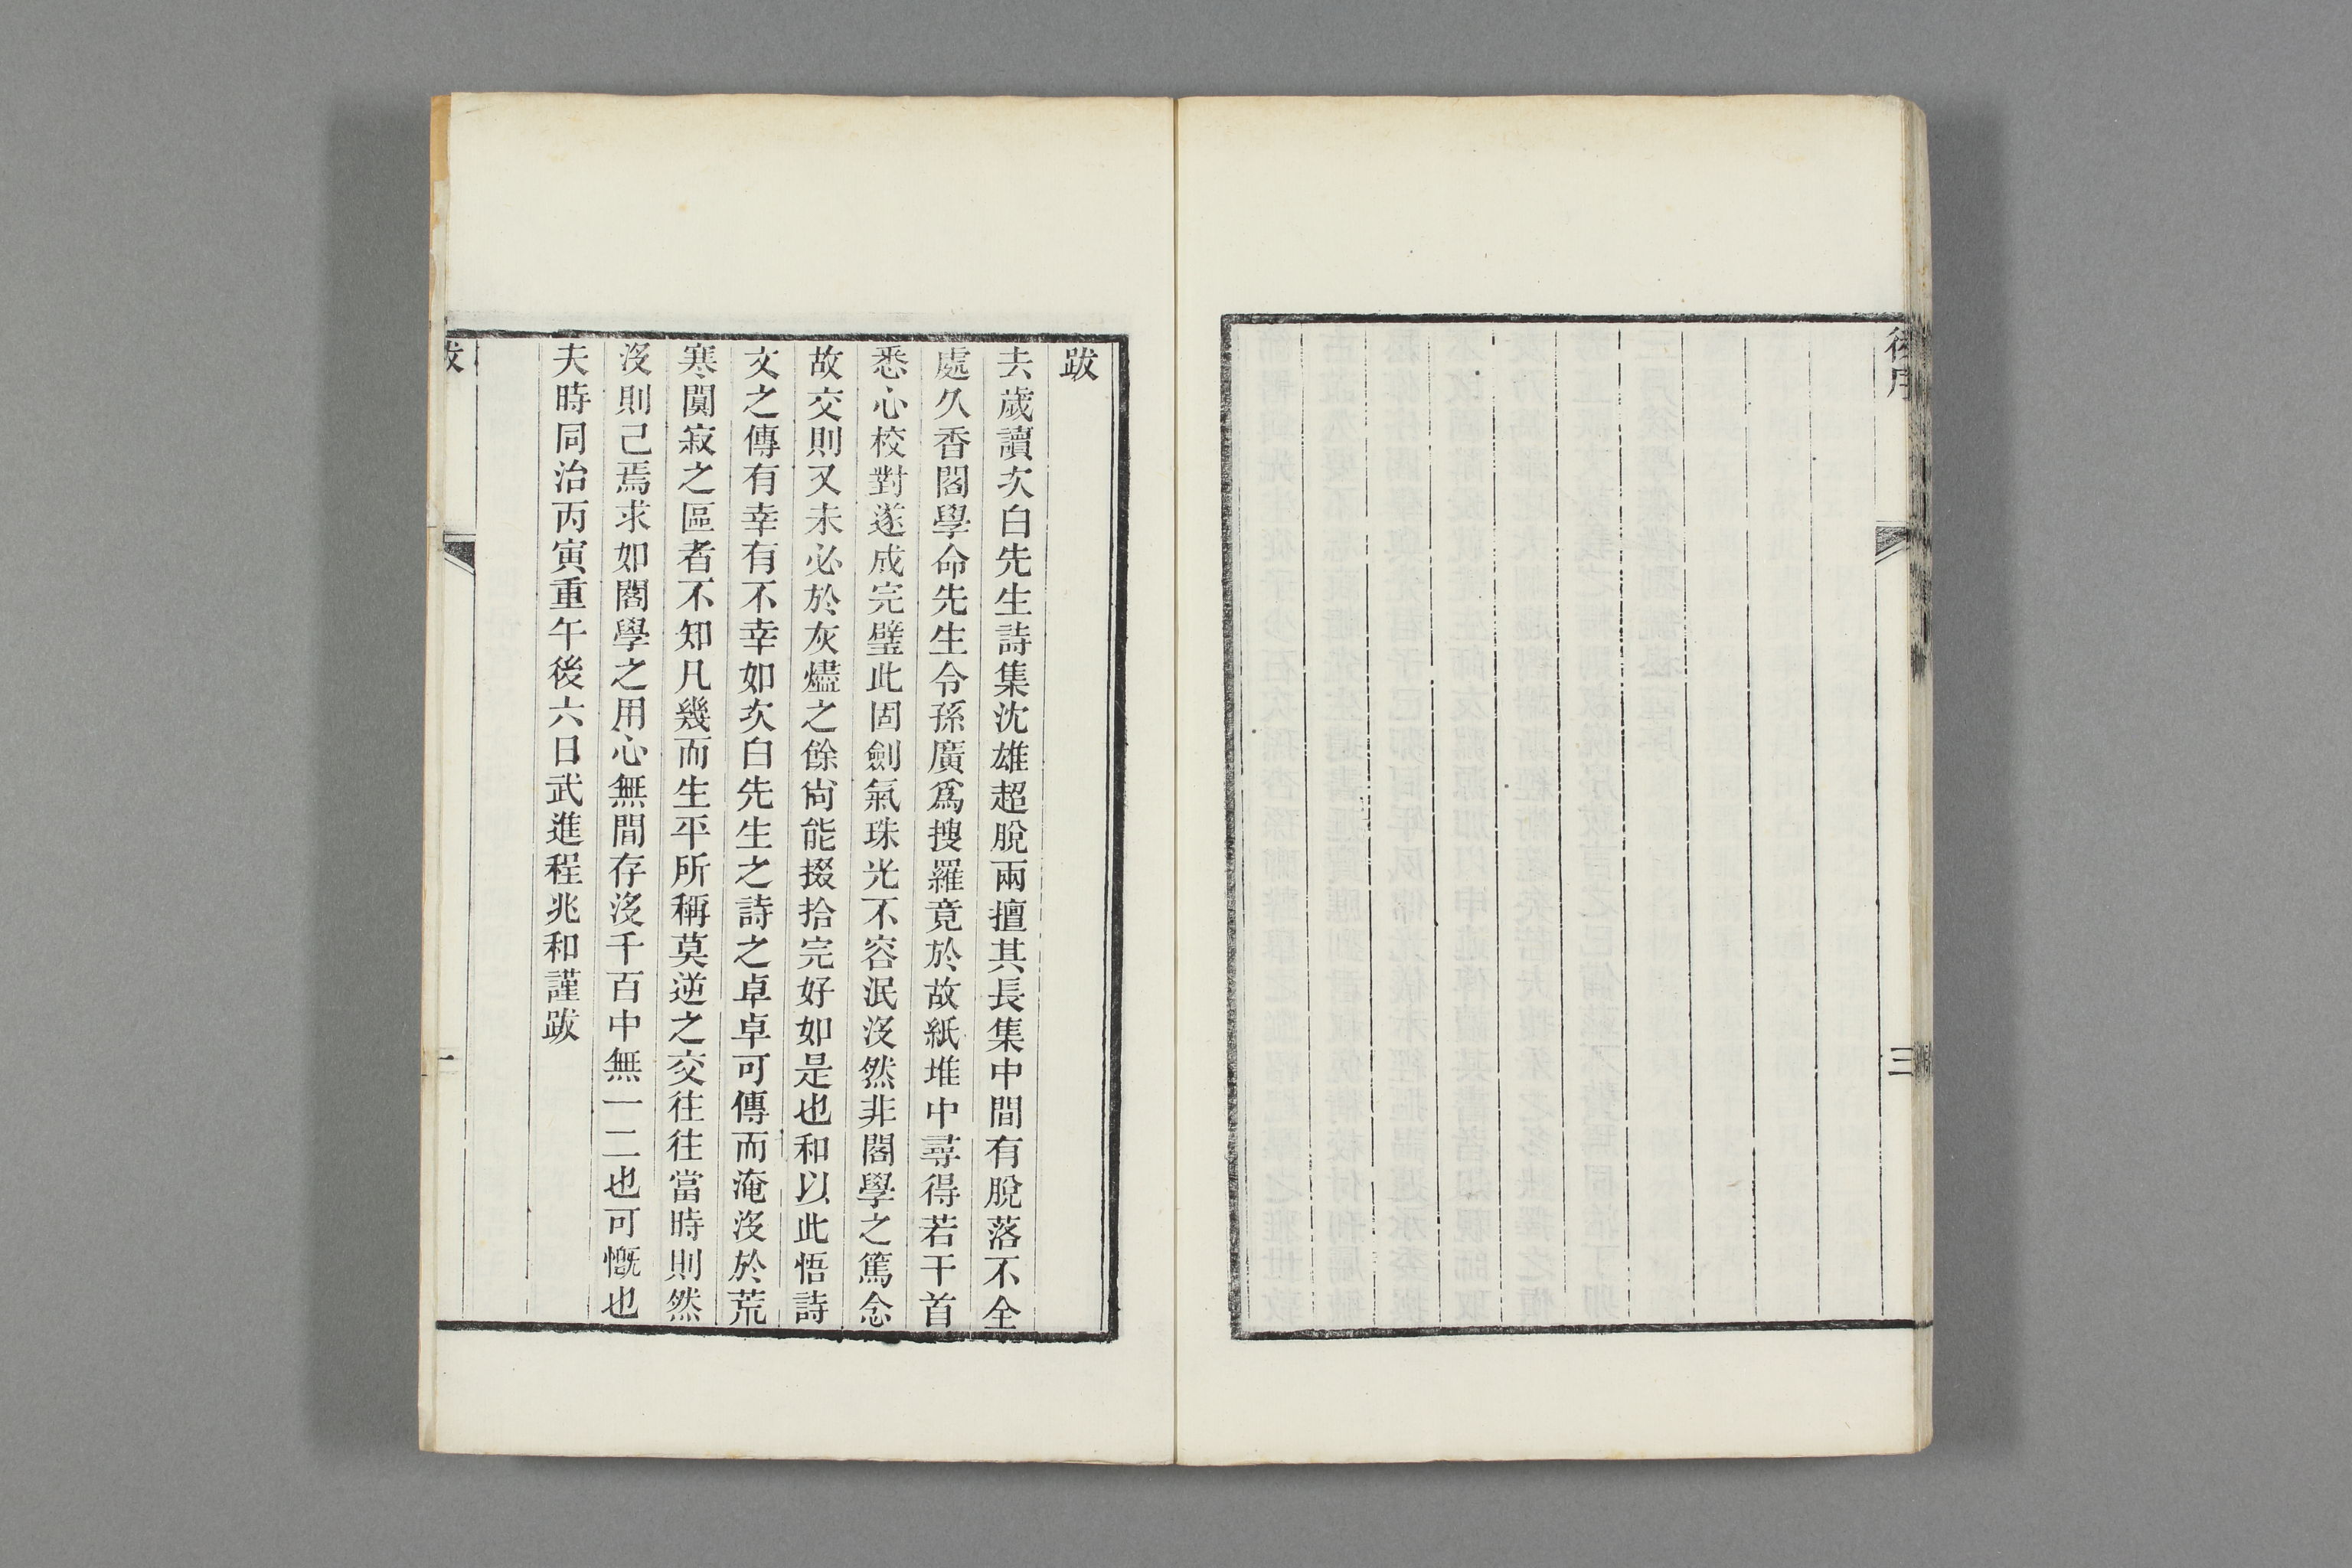 後序
三
跋
去歲讀次白先生詩集沈雄超脫兩擅其長集中間有脫落不全
處久香閣學命先生令孫廣爲搜羅竟於故紙堆中尋得若干首
悉心校對遂成完璧此固劍氣珠光不容泯沒然非閣學之篤念
故交則又未必於灰燼之餘尙能掇拾完好如是也和以此悟詩
文之傳有幸有不幸如次白先生之詩之卓卓可傳而淹沒於荒
寒闃寂之區者不知凡幾而生平所稱莫逆之交往往當時則然
沒則已焉求如閣學之用心無間存沒千百中無一二也可慨也
夫時同治丙寅重午後六日武進程兆和謹跋
跋
一